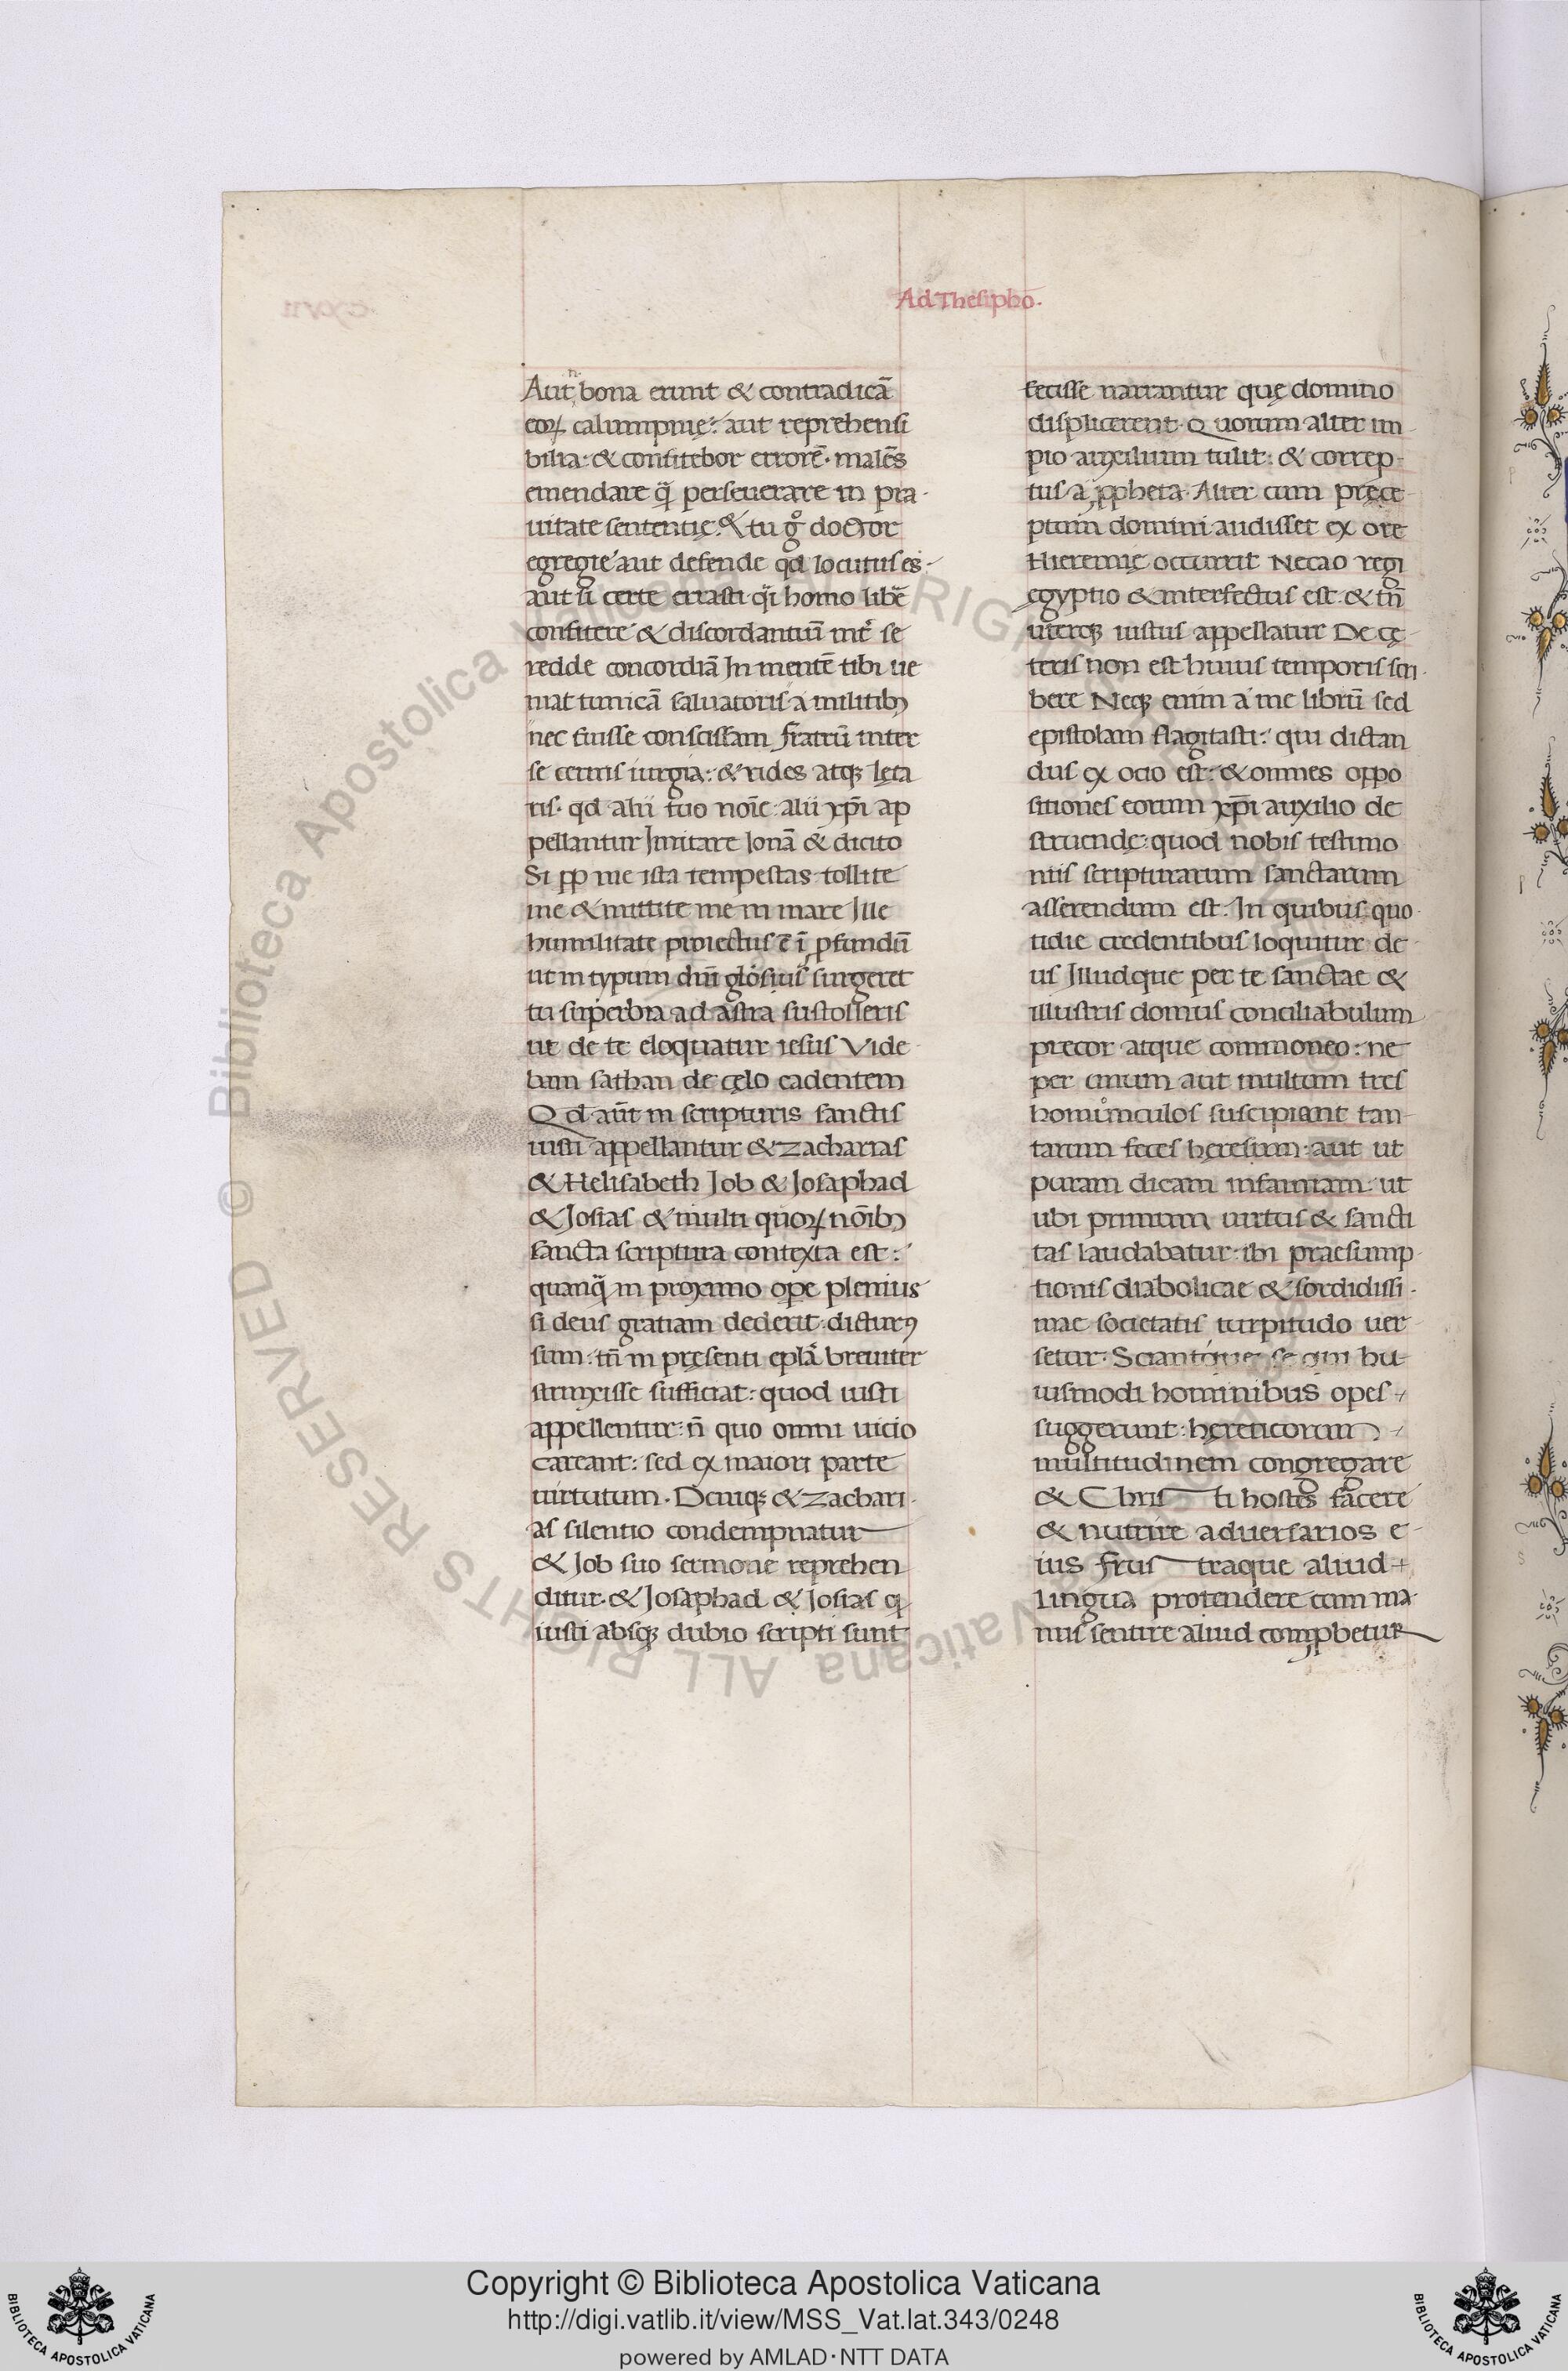 Ad Thesipho.
Aut n̄ bona erunt & contradicā
eoꝝ calumpnię: aut reprehensi
bilia: & confitebor errorē. malēs
emendare q̄ perseuerare in pra
uitate sententię. & tu gͦ doctor
egregie aut defende qd locutus es.
aut si certe errasti qͥ homo libē
confitere & discordantiū int̄ se
redde concordiā In mentē tibi ue
niat tunicā saluatoris a militibꝫ
nec fuisse conscissam fratrū inter
se cernis iurgia: & rides atqꝫ lęta
ris. qd alii tuo noīe alii xp̄i ap
pellantur Imitare Ionā & dicito
Si ꝓꝑ me ista tempestas tollite
me & mittite me in mare Ille
humilitate proiectus ē ī ꝓfundū
ut in typum dn̄i glo̅sius surgeret
tu superbia ad astra sustolleris
ut de te eloquatur iesus Vide
bam sathan de cęlo cadentem
Qd aūt in scripturis sanctis
iusti appellantur & Zacharias
& Helisabeth Iob & Iosaphad
& Iosias & multi quoꝝ noībꝫ
sancta scriptura contexta est:
quanq̄ in proximo ope plenius
si deus gratiam dederit dicturꝰ
sum: tn̄ in pręsenti eplā breuiter
strinxisse sufficiat: quod iusti
appellentur: n̄ quo omni uicio
careant: sed ex maiori parte
uirtutum. Deniqꝫ & Zachari
as silentio condempnatur
& Iob suo sermone reprehen
ditur. & Iosaphad & Iosias qͥ
iusti absqꝫ dubio scripti sunt
fecisse narrantur quę domino
displicerent. Quorum alter im
pio auxilium tulit: & correp
tus a ꝓpheta. Alter cum pręce
ptum domini audisset ex ore
Hieremię occurrit Necao regi
egyptio & interfectus est. & tn̄
uterqꝫ iustus appellatur De cę
teris non est huius temporis scri
bere Neqꝫ enim a me librū sed
epistolam flagitasti: qui dictan
dus ex ocio est: & omnes oppo
sitiones eorum xp̄i auxilio de
struendę: quod nobis testimo
niis scripturarum sanctarum
asserendum est. In quibus quo
tidie credentibus loquitur de
us Illudque per te sanctae &
illustris domus conciliabulum
precor atque commoneo: ne
per unum aut multum tres
homunculos suscipiant tan
tarum feces hęresium: aut ut
parum dicam infamiam: ut
ubi primum uirtus & sancti
tas laudabatur ibi praesump
tionis diabolicae & sordidissi
mae societatis turpitudo uer
setur. Sciantque se qui hu
iusmodi hominibus opes
suggerunt: hęreticorum
multitudinem congregare
& Christi hostes facere
& nutrire aduersarios e
ius frustraque aliud
lingua protendere cum ma
nus sentire aliud comꝓbetur
Copyright © Biblioteca Apostolica Vaticana
http://digi.vatlib.it/view/MSS_Vat.lat.343/0248
powered by AMLAD·NTT DATA